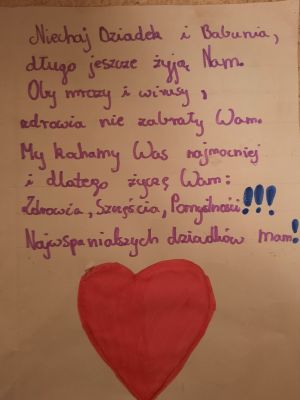 Niechaj Dziadek i Babunia,
długo jeszcze żyją Nam.
Oby mrozy i wirusy,
zdrowia nie zabrały Wam.
My kochamy Was najmocniej
i dlatego życzę Wam:
Zdrowia, Szczęścia, Pomyślności!!!
Najwspanialszych dziadków mam!